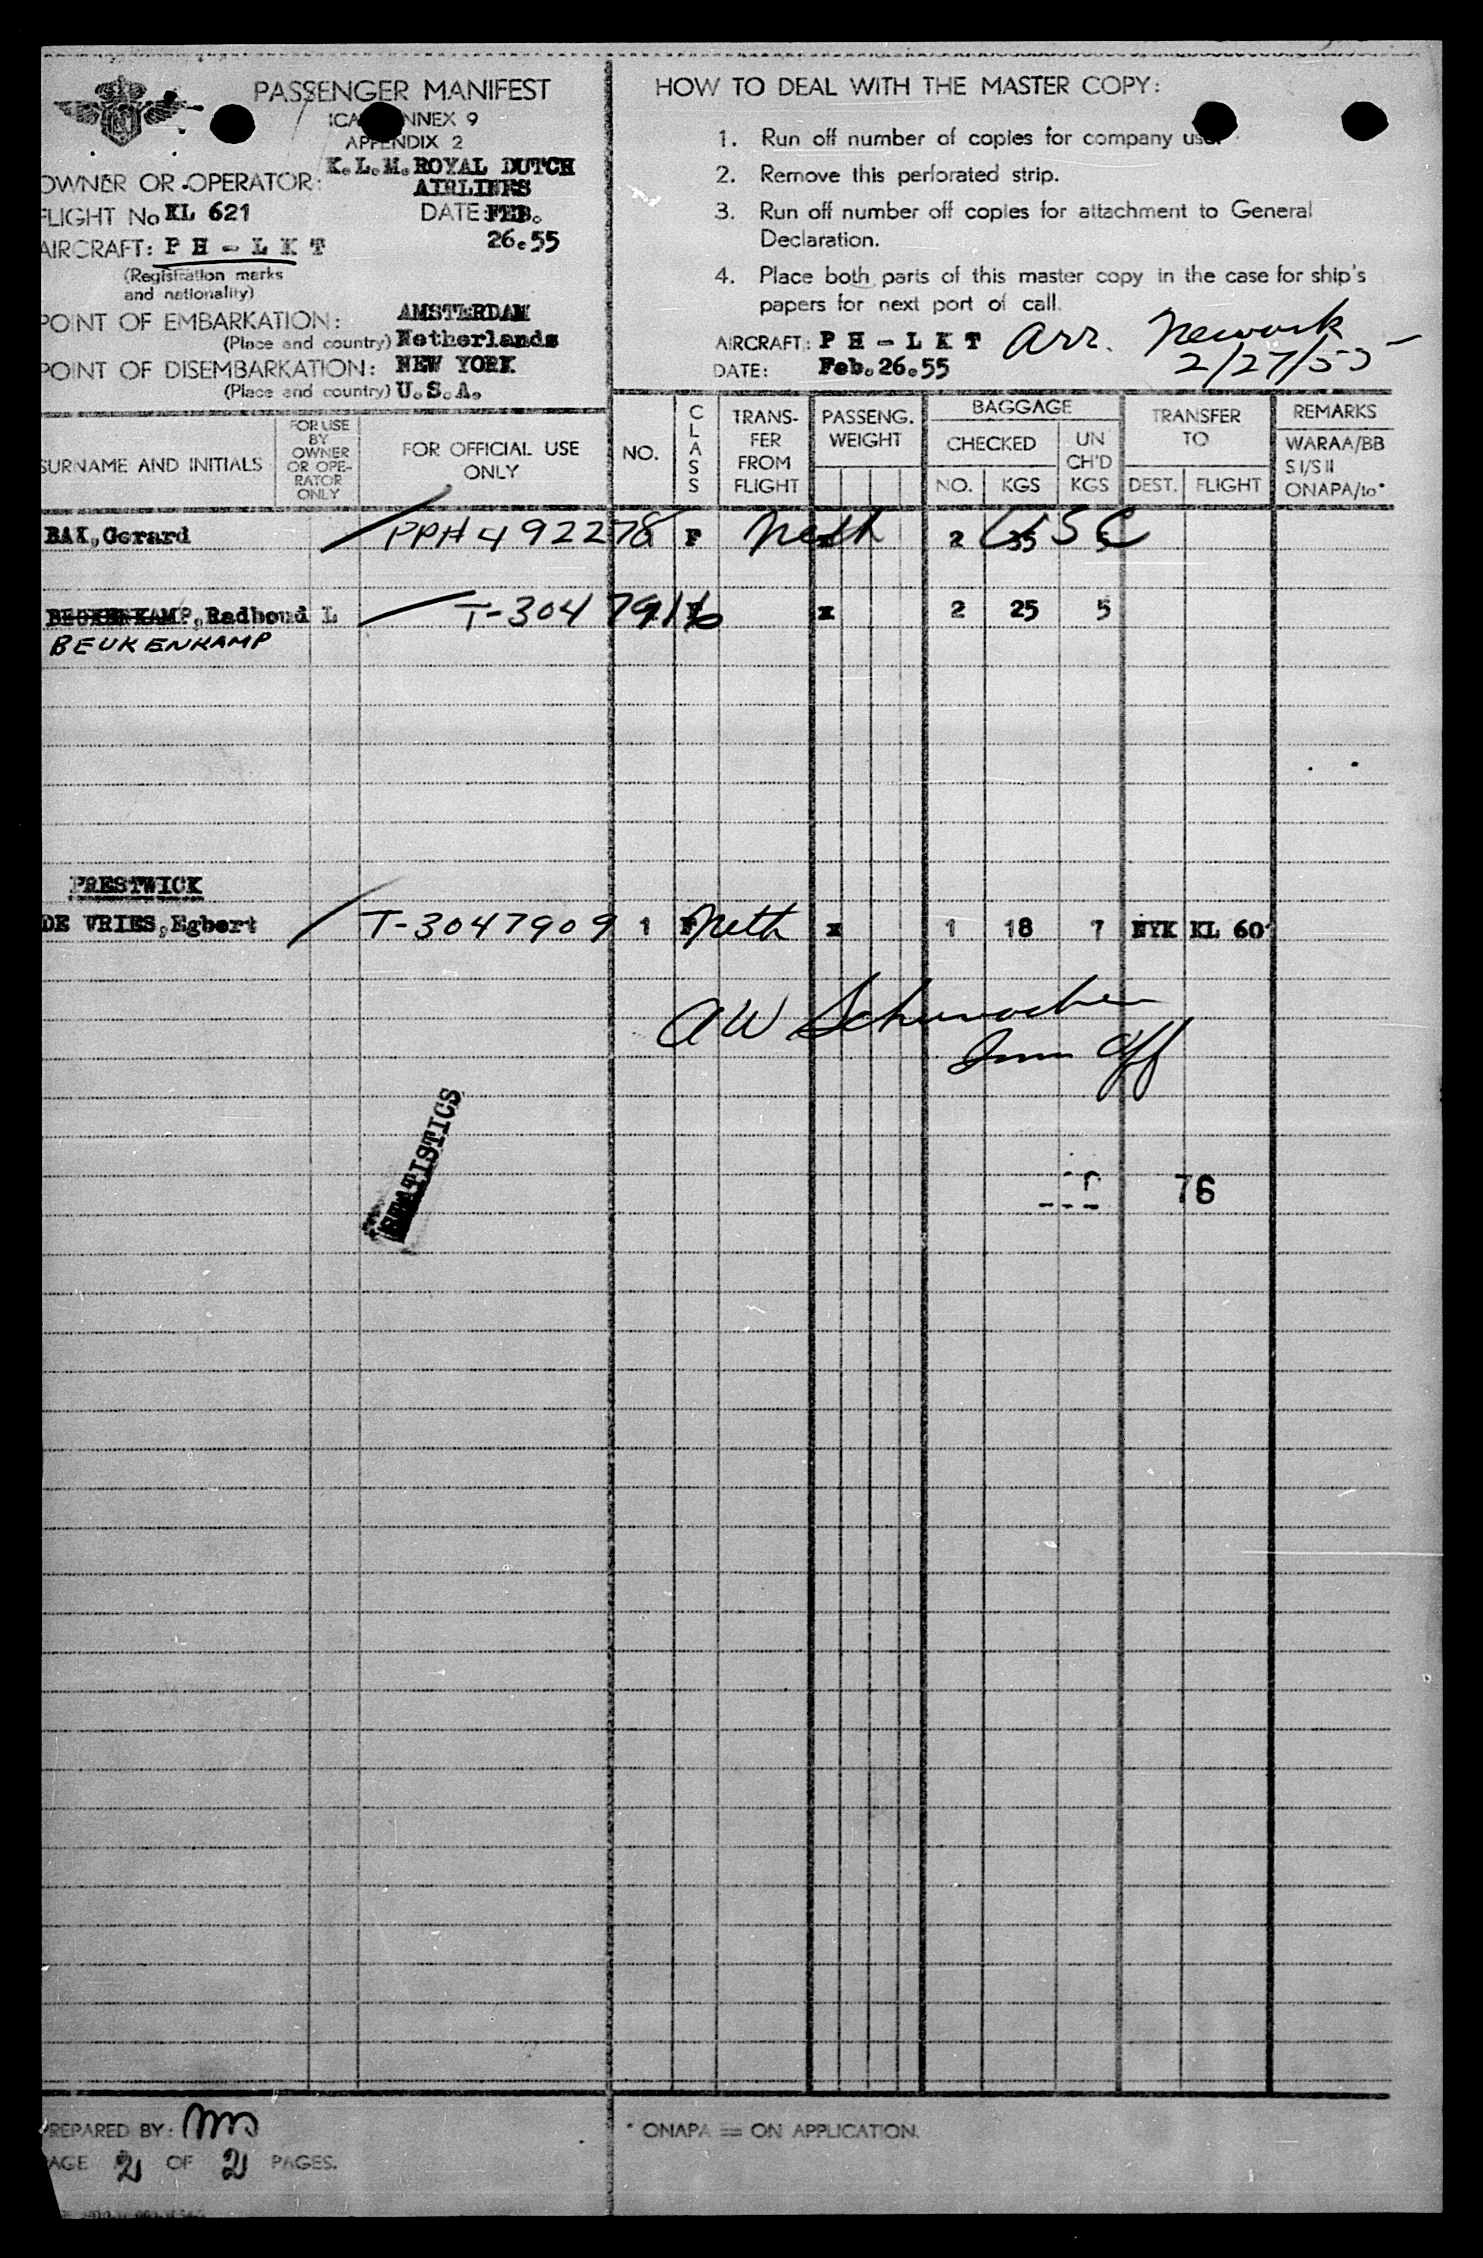 PASSENGER MANIFEST
ICAO ANNEX 9
APPENDIX 2
OWNER OR OPERATOR: K.L.M. ROYAL DUTCH
AIRLINES
FLIGHT No KL 621 DATE: FEB.
26.55
AIRCRAFT: P H - L K T
(Registration marks
and nationality)
POINT OF EMBARKATION: AMSTERDAM
(Place and country) Netherlands
POINT OF DISEMBARKATION: NEW YORK
(Place and country) U.S.A.
HOW TO DEAL WITH THE MASTER COPY:
1. Run off number of copies for company use.
2. Remove this perforated strip.
3. Run off number off copies for attachment to General
Declaration.
4. Place both parts of this master copy in the case for ship's
papers for next port of call.
AIRCRAFT: P H - L K T Arr. Newark
DATE: Feb. 26.55 2/27/55
SURNAME AND INITIALS
FOR USE
BY
OWNER
OR OPE-
RATOR
ONLY
FOR OFFICIAL USE
ONLY
NO.
CLASS
TRANS-
FER
FROM
FLIGHT
PASSENG.
WEIGHT
BAGGAGE
CHECKED
UN
CH'D
NO. KGS KGS
TRANSFER
TO
DEST. FLIGHT
REMARKS
WARAA/BB
S I/S II
ONAPA/to*
BAK, Gerard PPH 492278 F Neth 2 35 5
BEUKENKAMP, Radboud L T-3047916 x 2 25 5
BEUKENKAMP
PRESTWICK
DE VRIES, Egbert T-3047909 1 F Neth x 1 18 7 NYK KL 60
AW Schumacher
Imm Off
STATISTICS
76
PREPARED BY:
PAGE 2 OF 2 PAGES.
* ONAPA = ON APPLICATION.